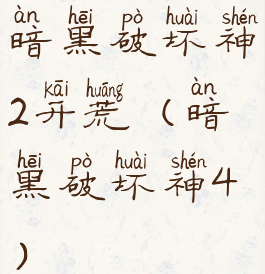 àn hēi pò huài shén
暗黑破坏神
kāi huāng àn
2开荒(暗
hēi pò huài shén
黑破坏神4
)